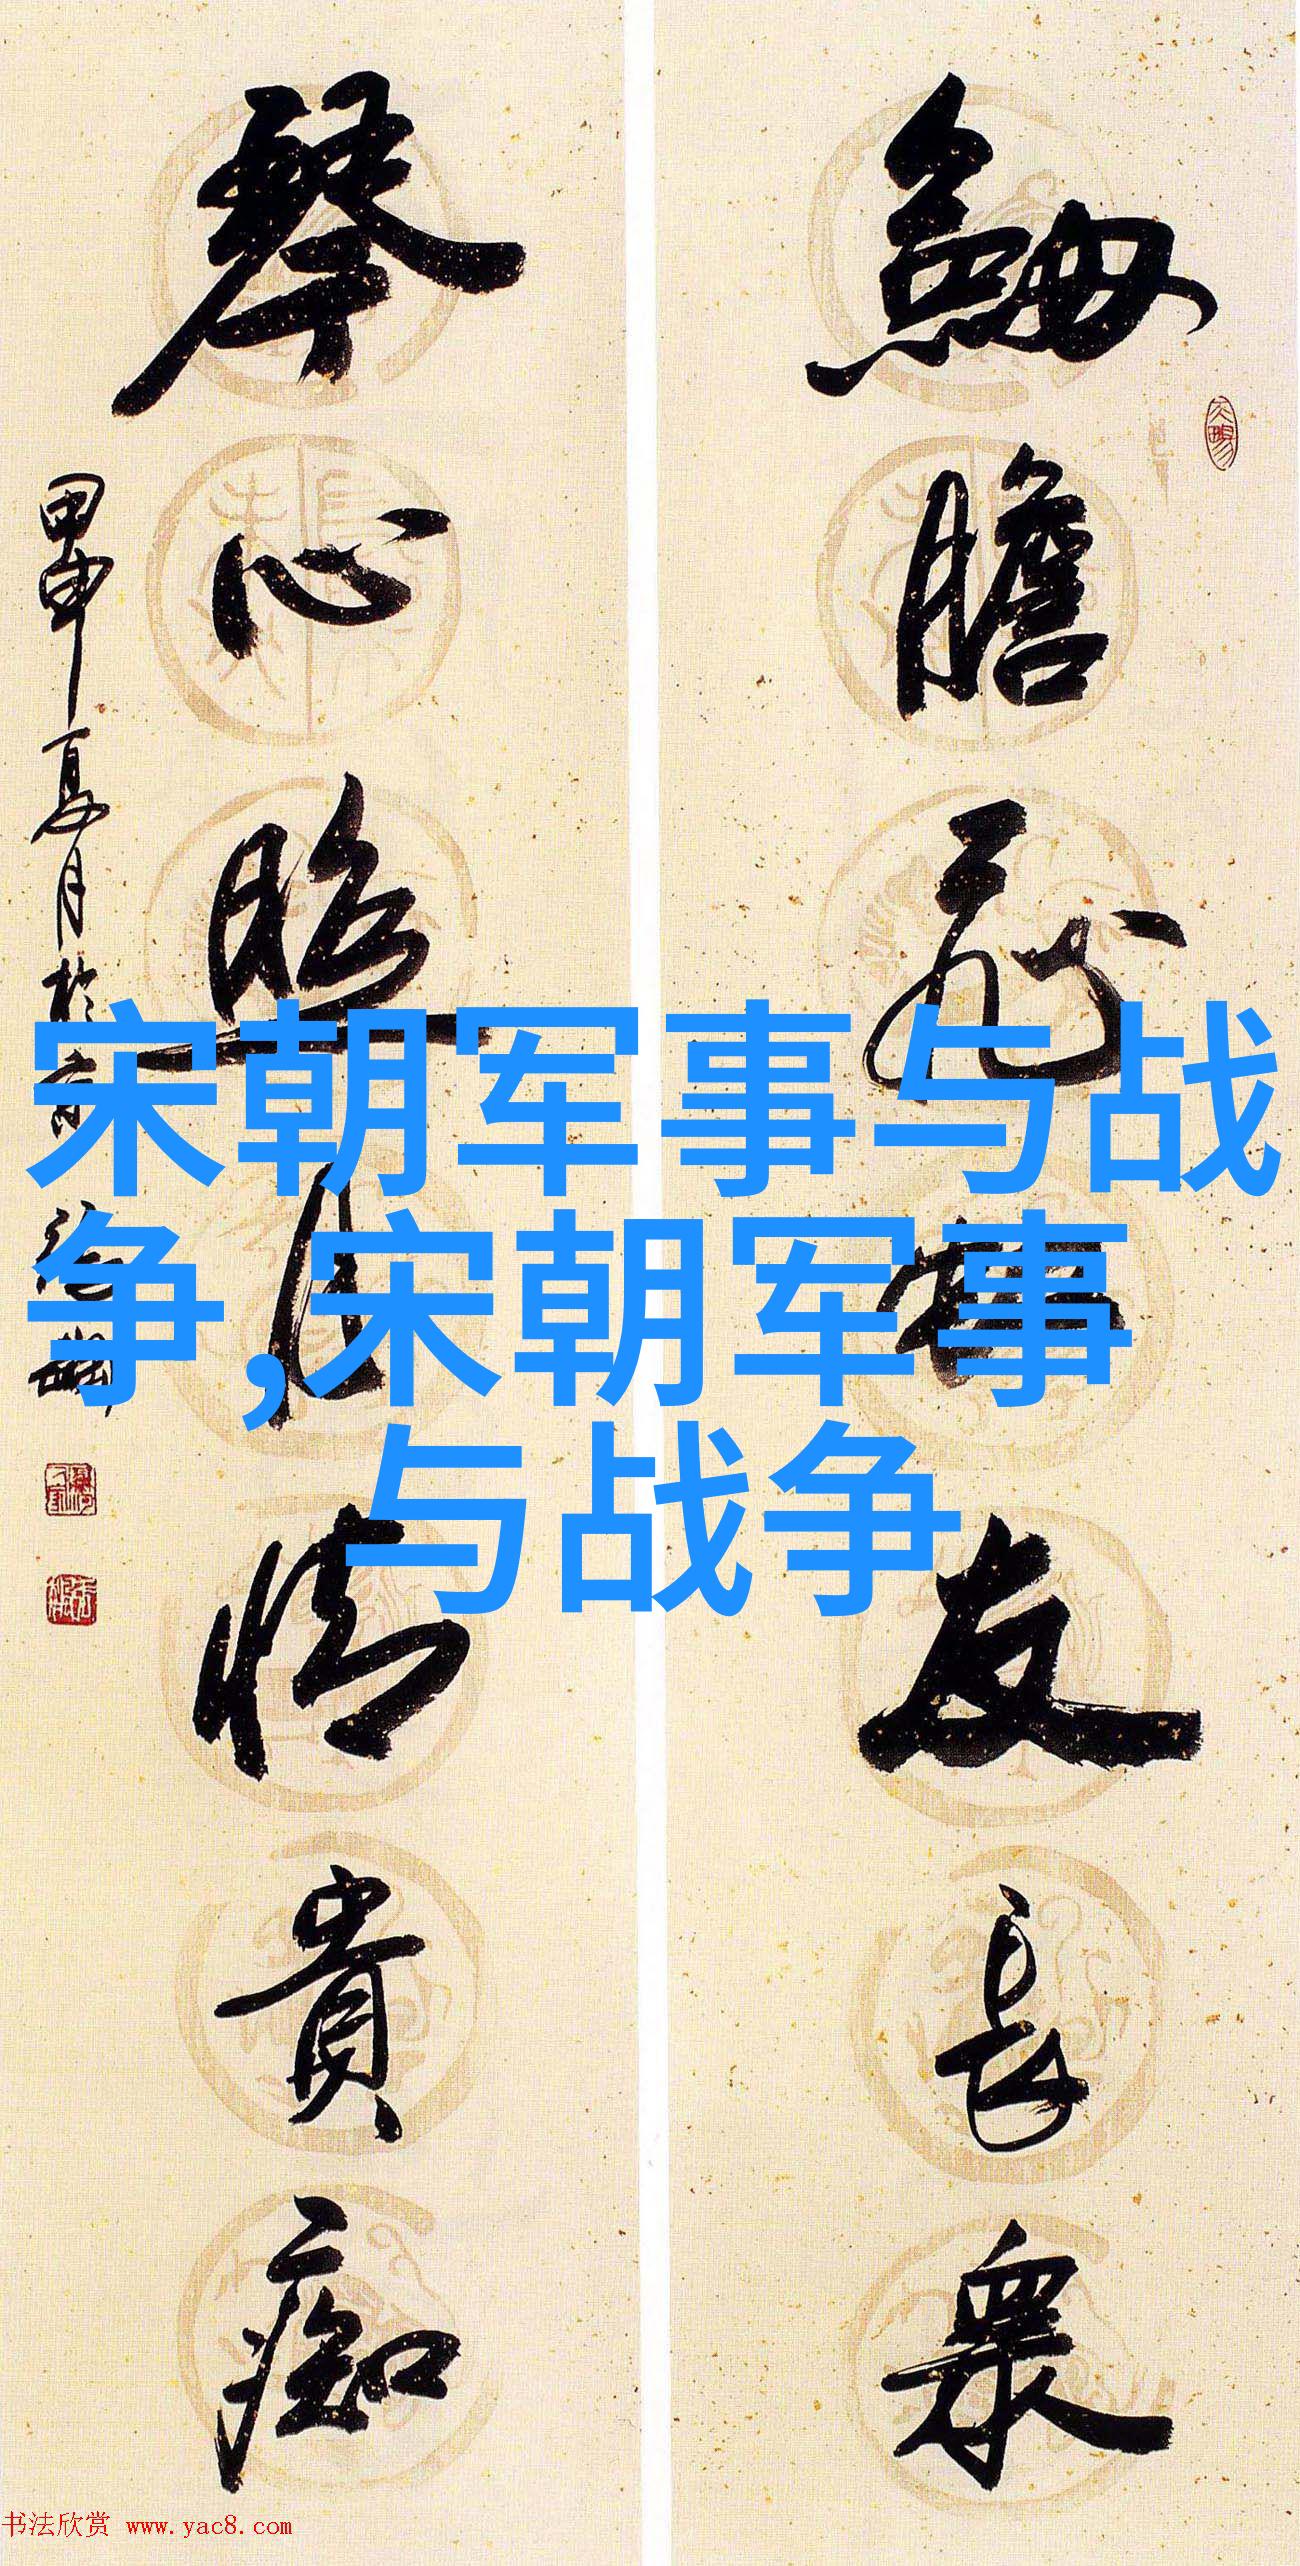 劍膽飛友長眾
琴心照月情貴痴
甲申夏月於京
宋朝军事与战
争,宋朝军事
与战争
书法欣赏 www.yac8.com